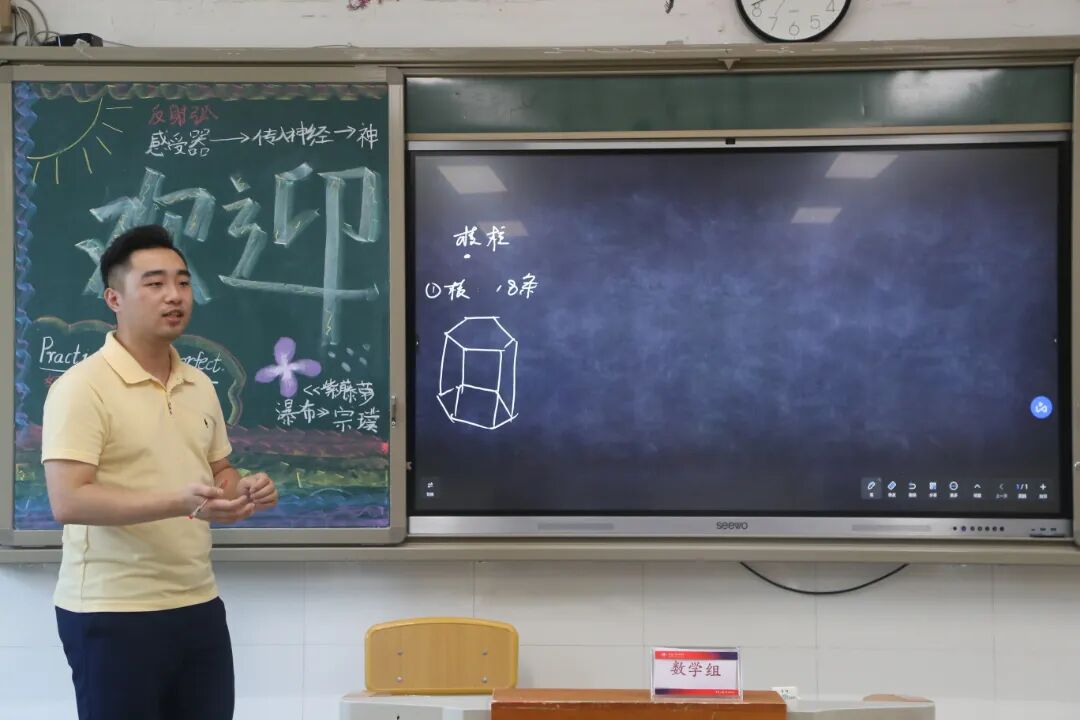 反射弧
感受器→传入神经→神
欢迎
Practi
rfect.
《紫藤萝
瀑布》宗璞
棱柱
①棱：18条
seewo
1/1
数学组
8 7 6 5 4